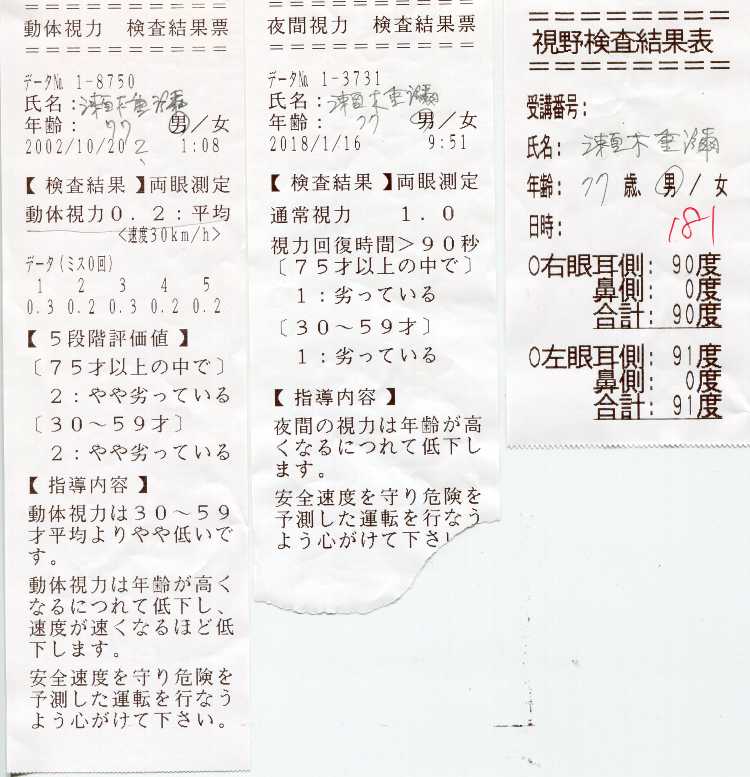 ==========
動体視力 検査結果票
==========
データ№ 1-8750
氏名:瀬木重彌
年齢: 77 男/女
2002/10/20 2 1:08
【 検査結果 】両眼測定
動体視力0.2:平均
<速度30km/h>
データ(ミス0回)
1 2 3 4 5
0.3 0.2 0.3 0.2 0.2
【 5段階評価値 】
〔75才以上の中で〕
2:やや劣っている
〔30~59才〕
2:やや劣っている
【 指導内容 】
動体視力は30~59
才平均よりやや低いで
す。
動体視力は年齢が高く
なるにつれて低下し、
速度が速くなるほど低
下します。
安全速度を守り危険を
予測した運転を行なう
よう心がけて下さい。
==========
夜間視力 検査結果票
==========
データ№ 1-3731
氏名:瀬木重彌
年齢: 77 男/女
2018/1/16 9:51
【 検査結果 】両眼測定
通常視力 1.0
視力回復時間>90秒
〔75才以上の中で〕
1:劣っている
〔30~59才〕
1:劣っている
【 指導内容 】
夜間の視力は年齢が高
くなるにつれて低下し
ます。
安全速度を守り危険を
予測した運転を行なう
よう心がけて下さい
==========
視野検査結果表
==========
受講番号:
氏名: 瀬木重彌
年齢: 77 歳、男/女
日時:
181
○右眼耳側: 90度
鼻側: 0度
合計: 90度
○左眼耳側: 91度
鼻側: 0度
合計: 91度